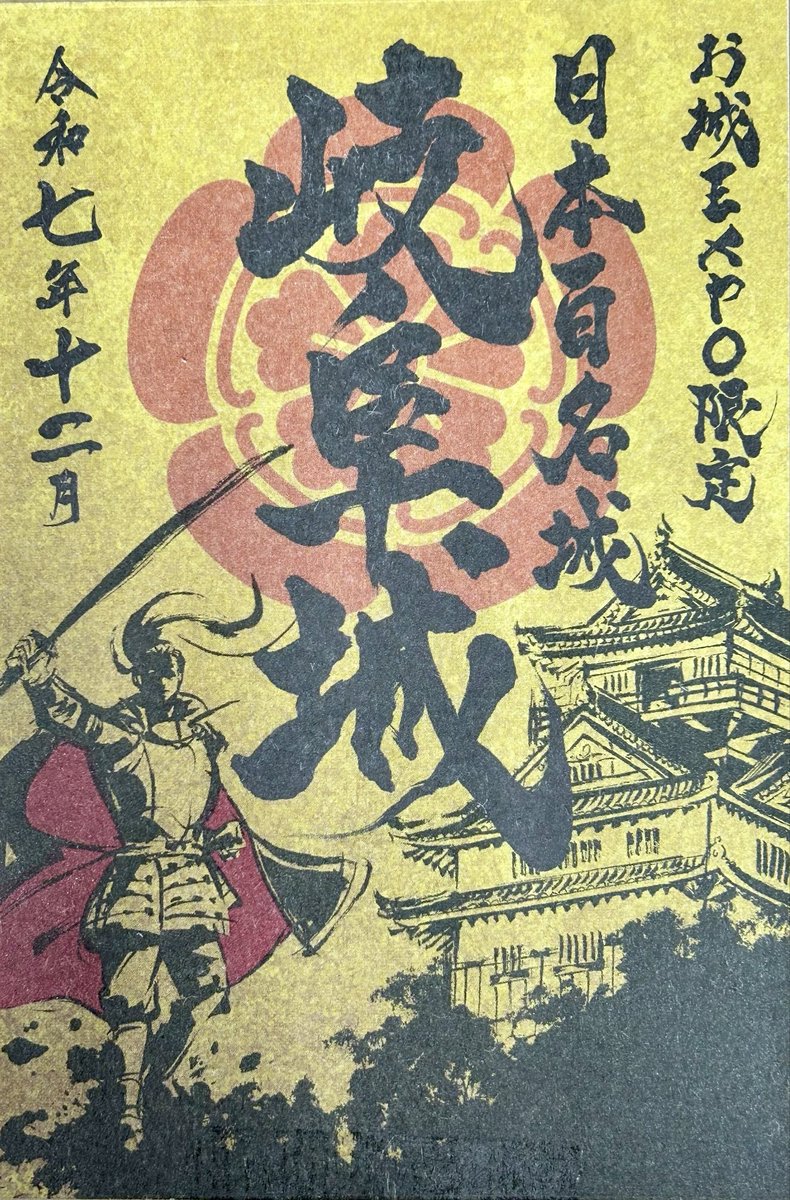 お城EXPO限定
日本百名城
岐阜城
令和七年十二月